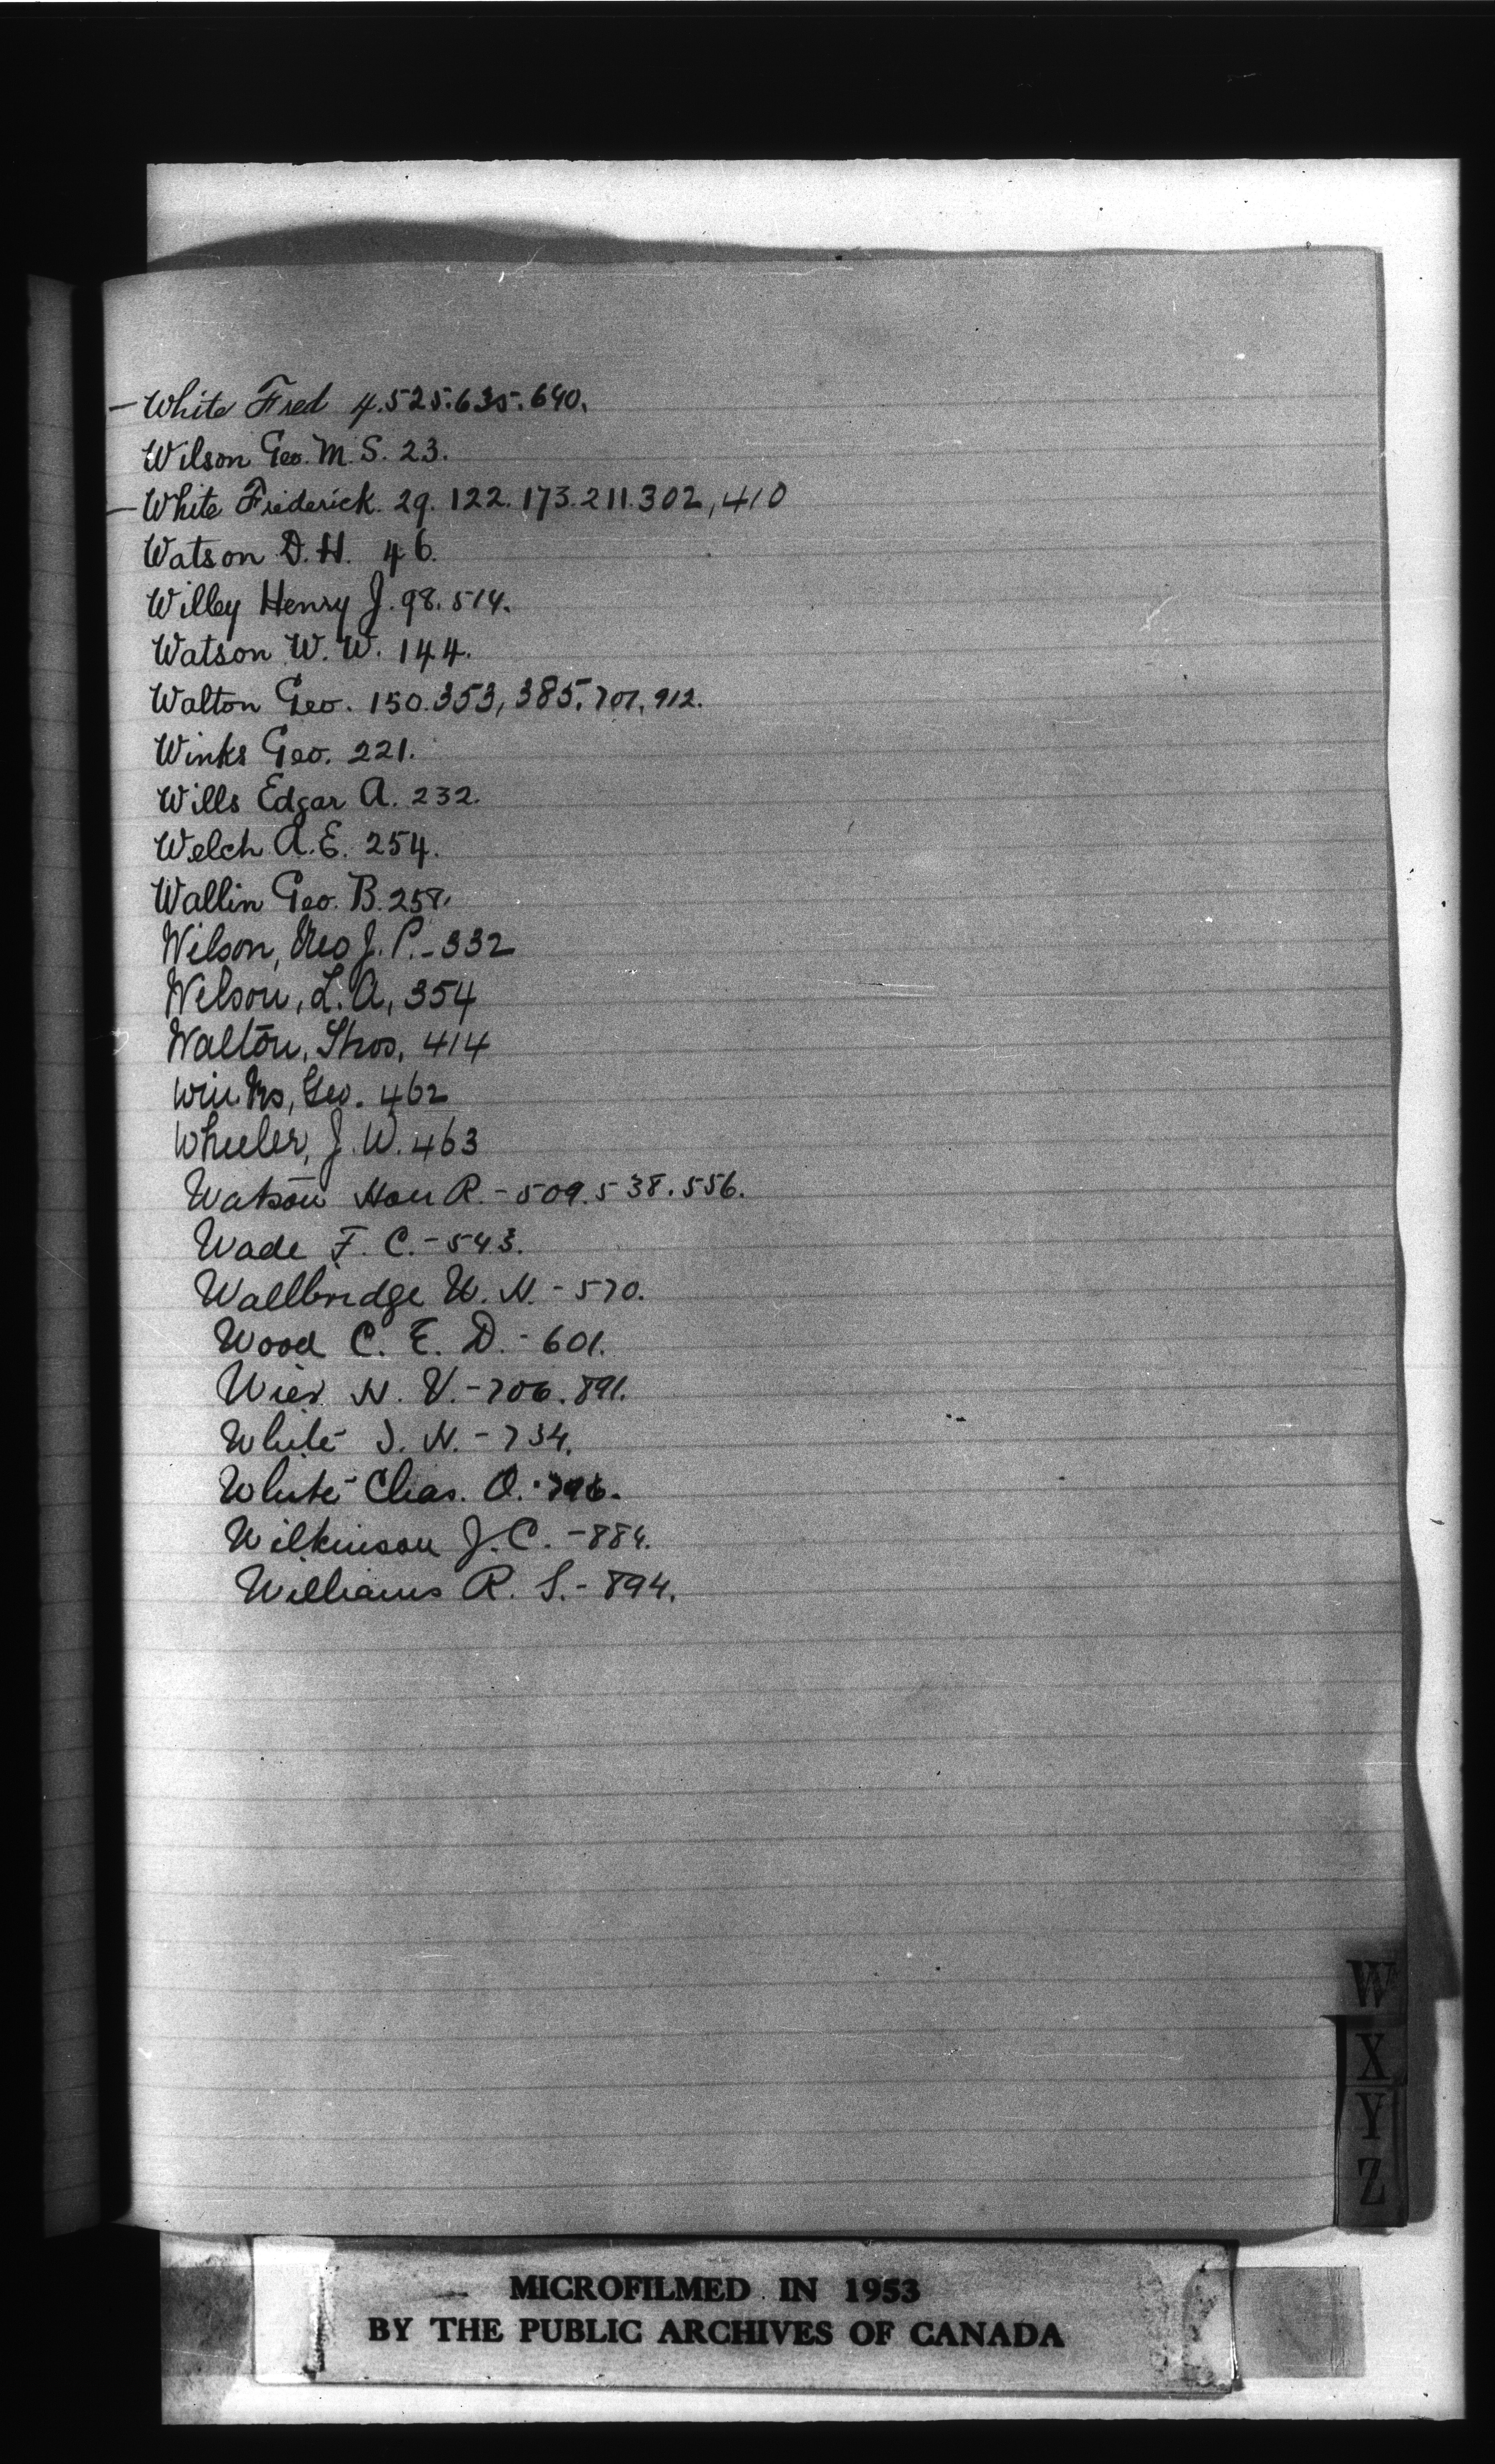 - White Fred 4.525.635.690.
Wilson Geo. M. S. 23.
- White Frederick. 29. 122. 173. 211. 302, 410
Watson D. H. 46.
Willey Henry J. 98. 514.
Watson W. W. 144.
Walton Geo. 150. 353, 385. 707. 912.
Winks Geo. 221.
Wills Edgar A. 232.
Welch A. E. 254.
Wallin Geo. B. 258.
Wilson, J. P. - 332
Wilson, L. A, 354
Walton, Thos, 414
Winks, Geo. 462
Wheeler, J. W. 463
Watson Hon R. - 509. 538. 556.
Wade F. C. - 543.
Wallbridge W. H. - 570.
Wood C. E. D. - 601.
Wier. H. V. - 706. 891.
White J. H. - 734.
White Chas. O.
Wilkinson J. C. - 884.
Williams R. S. - 894.
W
X
Y
Z
MICROFILMED IN 1953
BY THE PUBLIC ARCHIVES OF CANADA